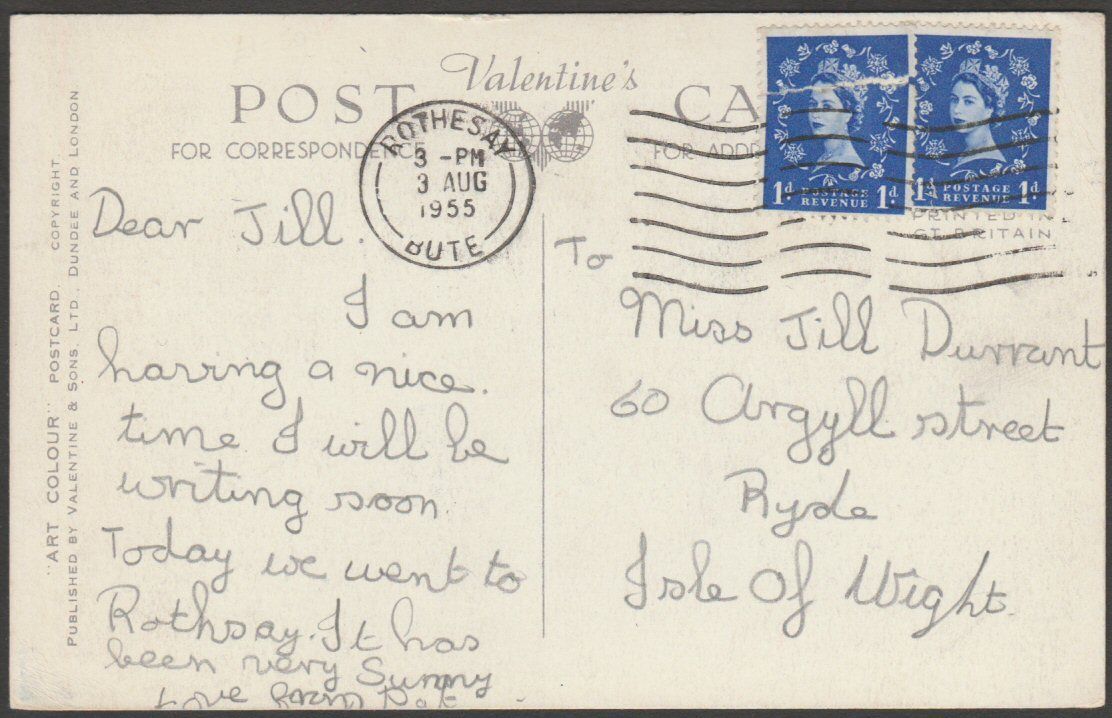 POST CARD
Valentine's
FOR CORRESPONDENCE
FOR ADDRESS
ROTHESAY
3 - PM
3 AUG
1955
BUTE
1d. POSTAGE REVENUE 1d.
1d. POSTAGE REVENUE 1d.
PRINTED IN
GT. BRITAIN
"ART COLOUR" POSTCARD. COPYRIGHT.
PUBLISHED BY VALENTINE & SONS, LTD., DUNDEE AND LONDON
Dear Jill.
I am
having a nice.
time I will be
writing soon.
Today we went to
Rothsay. It has
been very Sunny
Love from
To
Miss Jill Durrant
60 Argyll street
Ryde
Isle Of Wight.